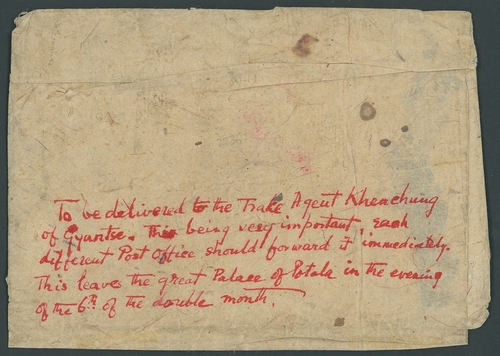 To be delivered to the Trade Agent Khenchung
of Gyantse. This being very important, each
different Post Office should forward it immediately.
This leaves the great Palace of Potala in the evening
of the 6th of the double month.